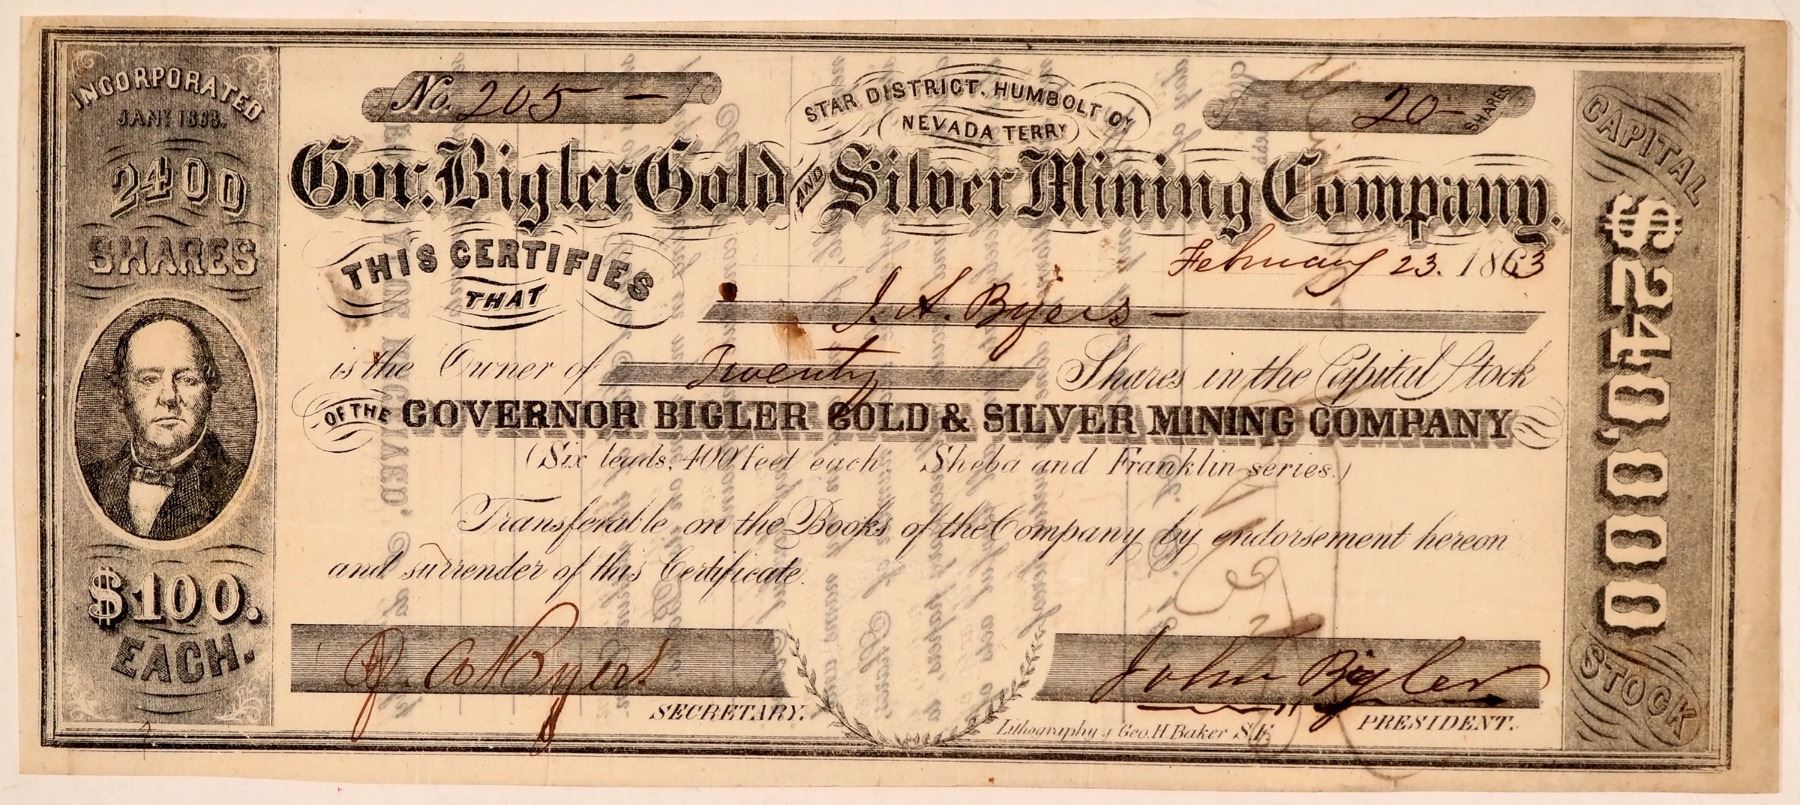 INCORPORATED
JANY 1863.
2400
SHARES
$100.
EACH.
No. 205 —
STAR DISTRICT. HUMBOLT Cy
NEVADA TERRY
20 — SHARES
Gov. Bigler Gold AND Silver Mining Company.
February 23. 1863
THIS CERTIFIES
THAT
J. A. Byers —
is the Owner of Twenty Shares in the Capital Stock
OF THE GOVERNOR BIGLER GOLD & SILVER MINING COMPANY
(Six leads, 400 feet each, Sheba and Franklin series.)
Transferable on the Books of the Company by endorsement hereon
and surrender of this Certificate.
J. A. Byers
SECRETARY.
John Bigler
PRESIDENT.
Lithography of Geo. H. Baker S.F.
CAPITAL
$240,000
STOCK